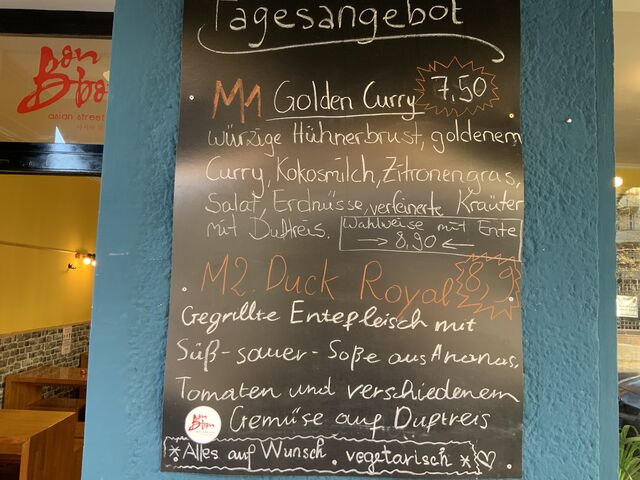 Tagesangebot
Bon Bon
asian street
M1 Golden Curry 7,50
würzige Hühnerbrust, goldenem
Curry, Kokosmilch, Zitronengras,
Salat, Erdnüsse, verfeinerte Kräuter
mit Duftreis. Wahlweise mit Ente
→ 8,90 ←
M2. Duck Royal 8,9
Gegrillte Entefleisch mit
Süß-sauer-Soße aus Ananas,
Tomaten und verschiedenem
Gemüse auf Duftreis
Bon Bon
* Alles auf Wunsch vegetarisch * ♡